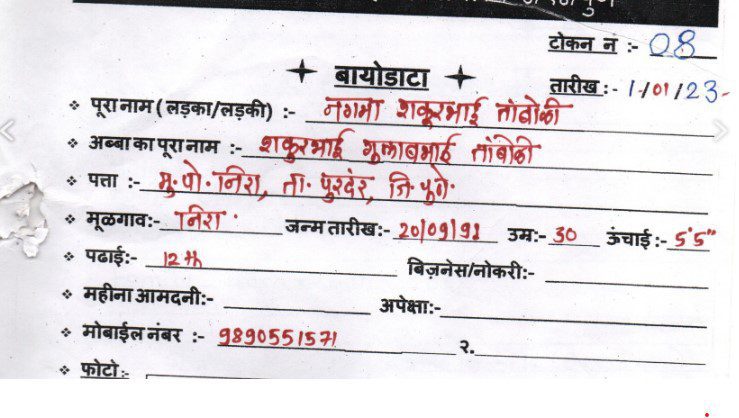 टोकन नं :- 08
बायोडाटा
तारीख :- 1/01/23-
❖ पूरा नाम ( लड़का/लड़की) :- नगमा शकूरभाई तांबोळी
❖ अब्बा का पूरा नाम :- शकुरभाई गुलाबभाई तांबोळी
❖ पत्ता :- मु.पो. निरा, ता. पुरदंर, जि. पुणे.
❖ मूळगाव:- निरा. जन्म तारीख:- 20/09/92 उम्र:- 30 ऊंचाई :- 5'5"
❖ पढाई:- 12th बिज़नेस/नोकरी:-
❖ महीना आमदनी:- अपेक्षा:-
❖ मोबाईल नंबर :- 9890551571 २.
❖ फोटो:-